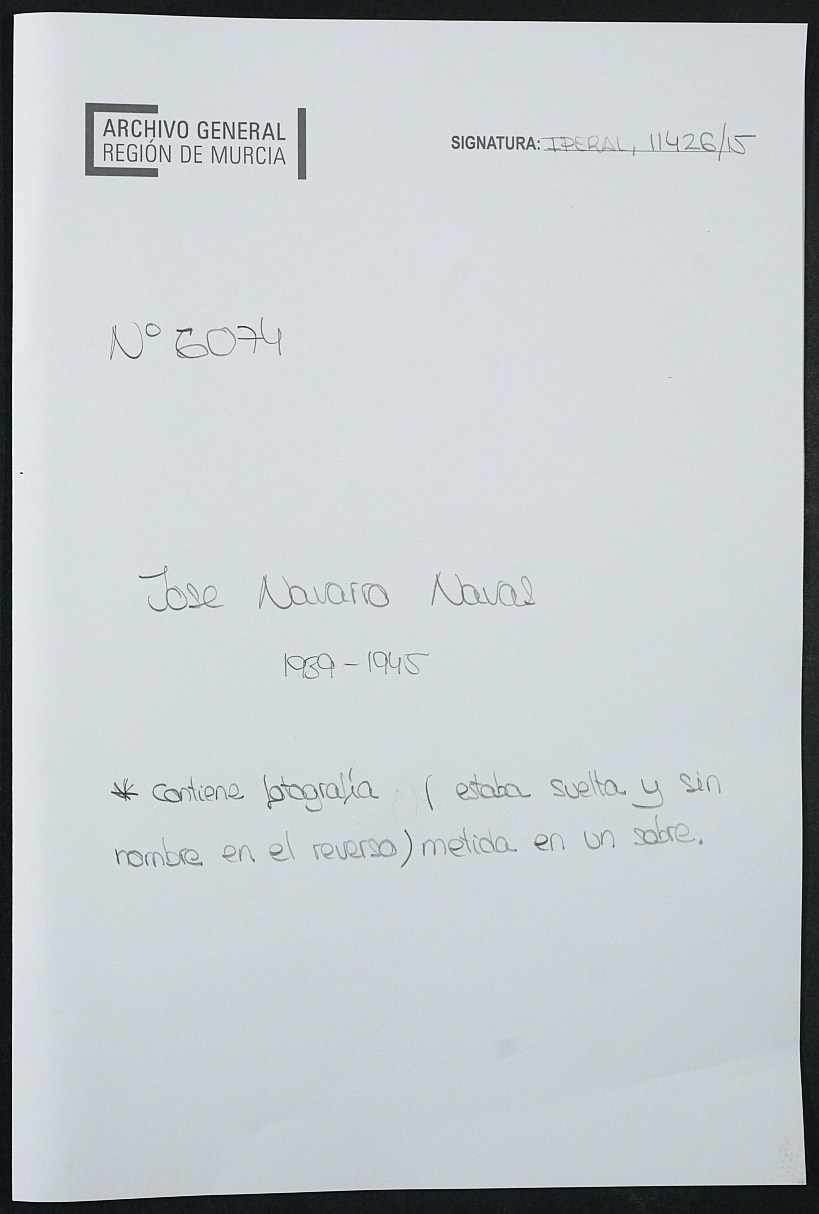 ARCHIVO GENERAL
REGIÓN DE MURCIA
SIGNATURA: IPERAL, 11426/15
Nº 6074
Jose Navarro Navas
1939-1945
* Contiene fotografía (estaba suelta y sin
nombre en el reverso) metida en un sobre.